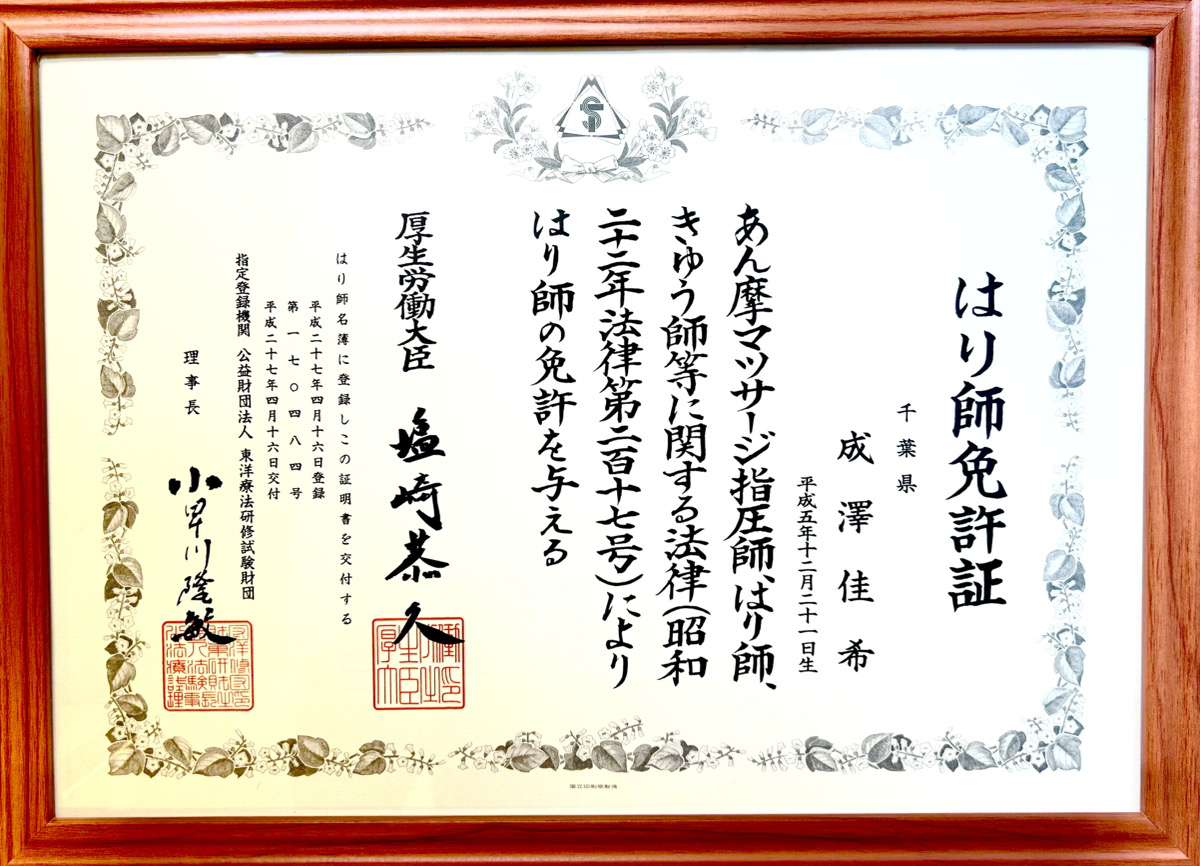 はり師免許証
千葉県
成澤佳希
平成五年十二月二十一日生
あん摩マツサージ指圧師、はり師、
きゆう師等に関する法律(昭和
二十二年法律第二百十七号)により
はり師の免許を与える
厚生労働大臣 塩崎恭久
はり師名簿に登録しこの証明書を交付する
平成二十七年四月十六日登録
第一七〇四八四号
平成二十七年四月十六日交付
指定登録機関 公益財団法人 東洋療法研修試験財団
理事長 小早川隆敏